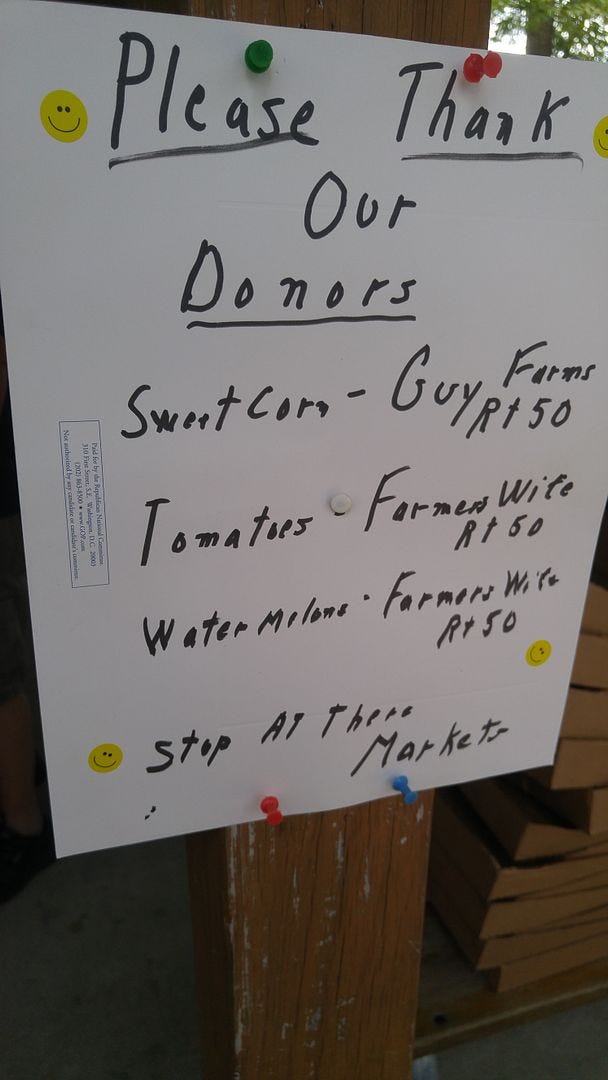 Please Thank
Our
Donors
Sweet Corn - Guy Farms
Rt 50
Tomatoes - Farmers Wife
Rt 50
Water Melons - Farmers Wife
Rt 50
Stop At There
Markets
Paid for by the Republican National Committee.
310 First Street, S.E. Washington, D.C. 20003
(202) 863-8500 • www.GOP.com
Not authorized by any candidate or candidate's committee.